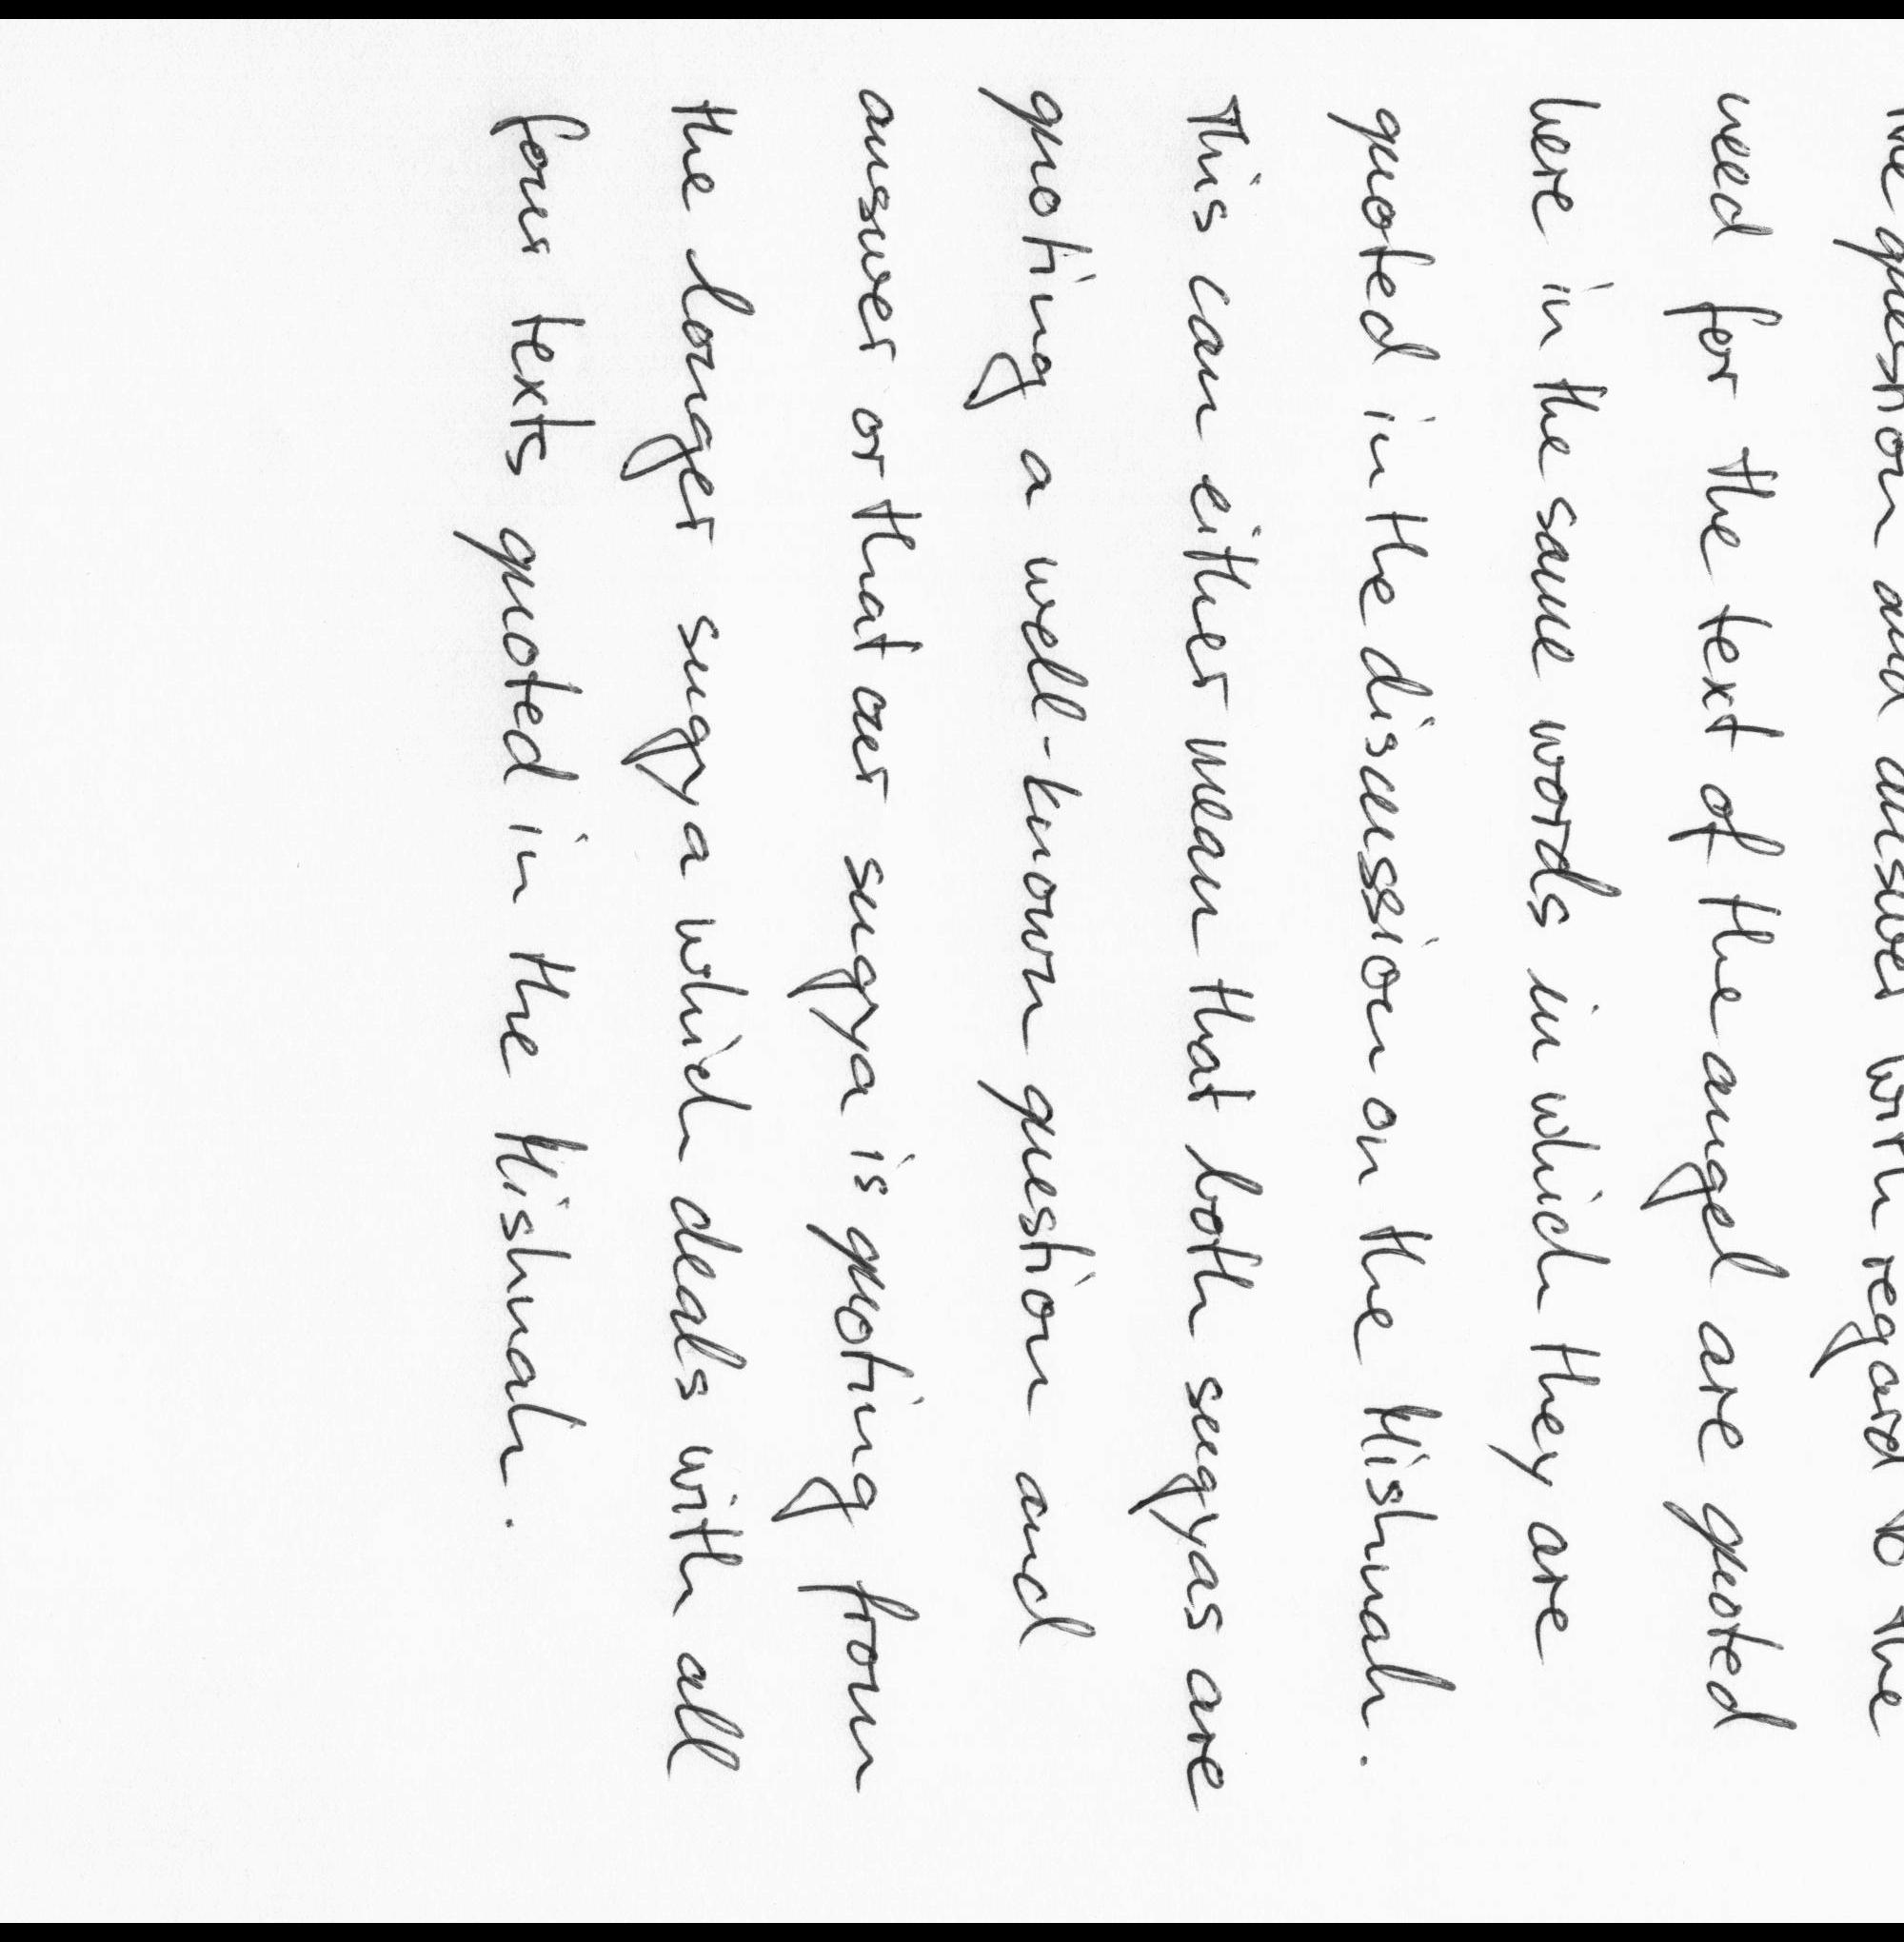 the question and answer with regard to the
need for the text of the angel are quoted
here in the same words in which they are
quoted in the discussion on the Mishnah.
This can either mean that both sugyas are
quoting a well-known question and
answer or that our sugya is quoting from
the longer sugya which deals with all
four texts quoted in the Mishnah.